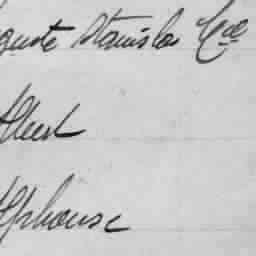 guste Stanislas
Albert
Alphonse